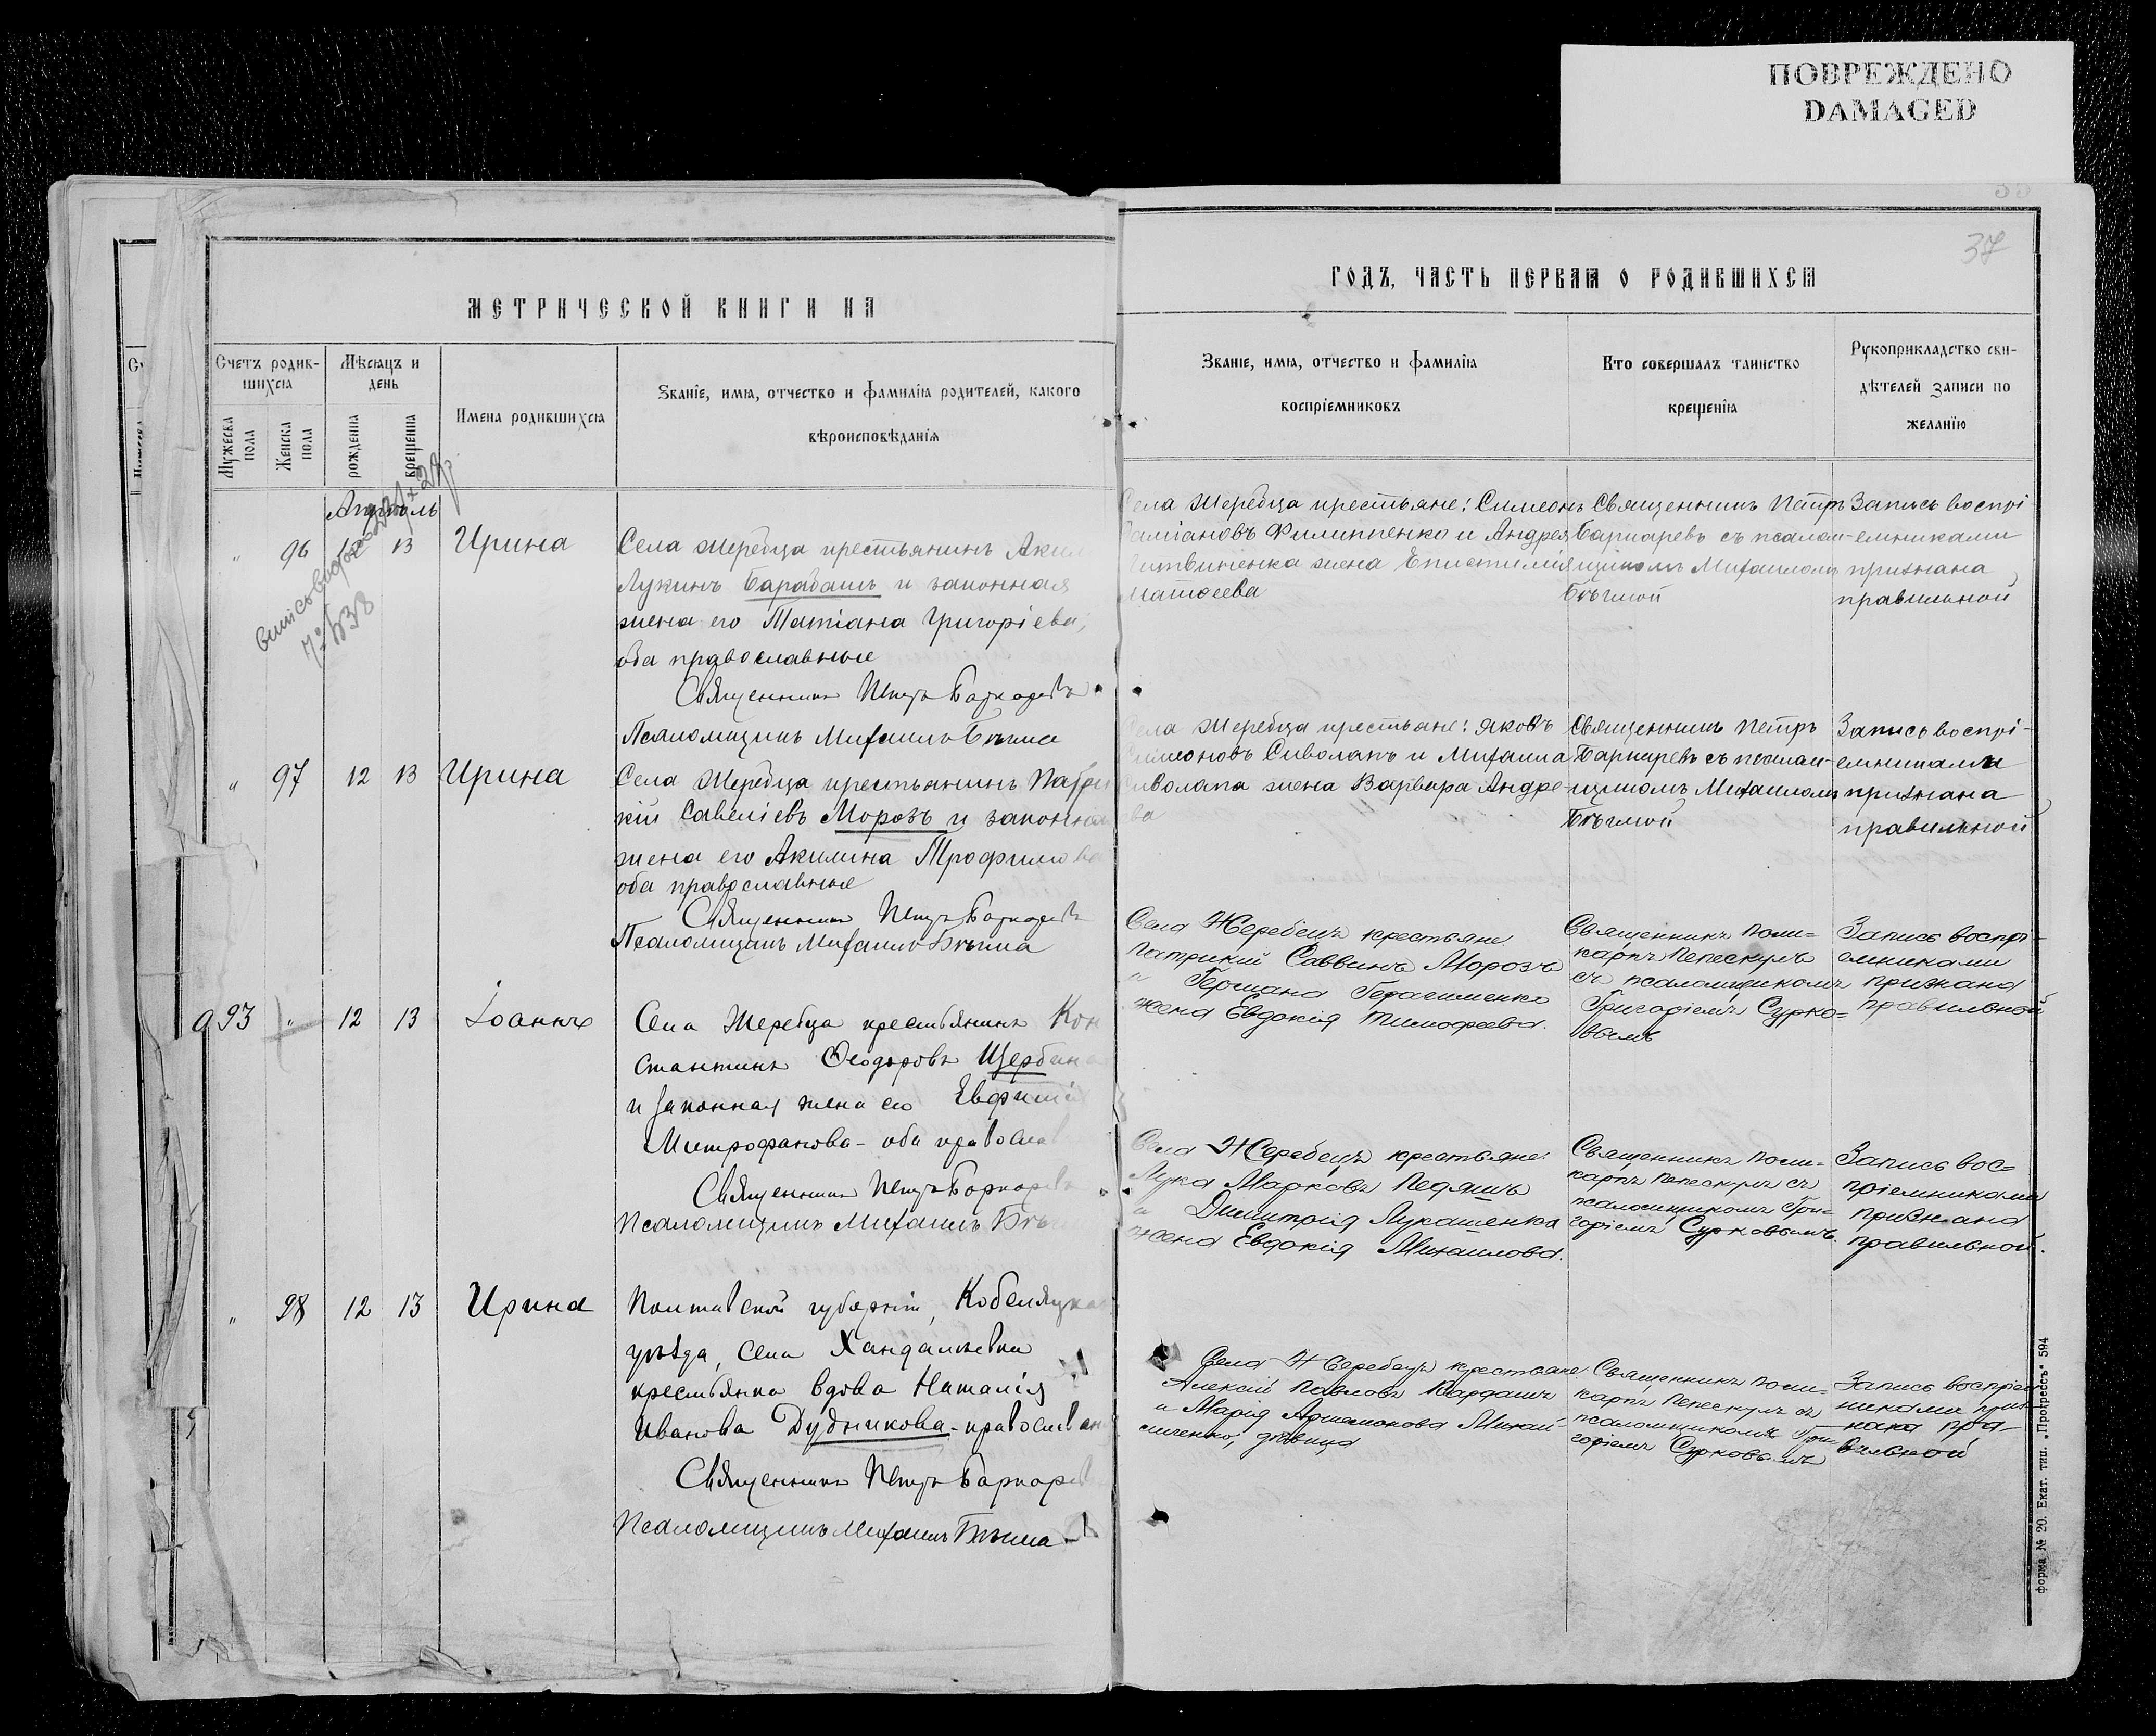 ПОВРЕЖДЕНО
DAMAGED
37
МЕТРИЧЕСКОЙ КНИГИ НА
ГОДЪ, ЧАСТЬ ПЕРВАЯ О РОДИВШИХСЯ
Счетъ родив-
шихся
Мѣсяцъ и
день
Имена родившихся
Званіе, имя, отчество и фамилія родителей, какого
вѣроисповѣданія
Мужеска
пола
Женска
пола
рожденія
крещенія
Званіе, имя, отчество и фамилія
воспріемниковъ
Кто совершалъ таинство
крещенія
Рукоприкладство сви-
дѣтелей записи по
желанію
Апрѣль
" 96 12 13 Ирина
Села Жеребца крестьянинъ Аким
Лукинъ Барабашъ и законная
жена его Татіана Григоріева,
оба православные
Священникъ Петръ Барваревъ
Псаломщикъ Михаилъ Бѣгма
Села Жеребца крестьяне: Симеонъ
Филиппенко и Андрея
Литвиненка жена Епистимія
Матѳеева
Священникъ Петръ
Барваревъ съ псалом-
щикомъ Михаиломъ
Бѣгмой
Запись воспрі
емниками
признана
правильной
" 97 12 13 Ирина
Села Жеребца крестьянинъ Патри
кій Савеліевъ Морозъ и законная
жена его Акилина Трофимова
оба православные
Священникъ Петръ Барваревъ
Псаломщикъ Михаилъ Бѣгма
Села Жеребца крестьяне: Яковъ
Симеоновъ Сиволапъ и Михаила
Сиволапа жена Варвара Андре-
ева
Священникъ Петръ
Барваревъ съ псалом-
щикомъ Михаиломъ
Бѣгмой
Запись воспрі-
емниками
признана
правильной
93 " 12 13 Іоаннъ
Села Жеребца крестьянинъ Кон
стантинъ Ѳеодоровъ Щербина
и законная жена его Евфимія
Митрофанова - оба правосла
Священникъ Петръ Барваревъ
Псаломщикъ Михаилъ Бѣгма
Села Жеребецъ крестьяне
Патрикій Саввинъ Морозъ
и Германа Герасименко
жена Евдокія Тимофеева.
Священникъ Поли=
карпъ Пепескулъ
съ псаломщикомъ
Григоріемъ Сурко=
вымъ
Запись воспрі-
емниками
признана
правильной
Села Жеребецъ крестьяне:
Лука Марковъ Педяшъ
и Димитрія Лукашенка
жена Евдокія Михаилова.
Священникъ Поли=
карпъ Пепескулъ съ
псаломщикомъ Гри=
горіемъ Сурковымъ.
Запись вос=
пріемниками
признана
правильной.
" 98 12 13 Ирина
Полтавской губерніи, Кобеляцка
уѣзда, села Хандалѣевки
крестьянка вдова Наталія
Иванова Дудникова - православн
Священникъ Петръ Барваревъ
Псаломщикъ Михаилъ Бѣгма
Села Жеребецъ крестьяне
Алексій Павловъ Кардашъ
и Марія Артамонова Михай-
личенко, дѣвица
Священникъ Поли=
карпъ Пепескулъ съ
псаломщикомъ Гри=
горіемъ Сурковымъ
Запись воспріем
никами приз
нана пра-
вильной
форма № 20. Екат. тип. „Прогрессъ" 594